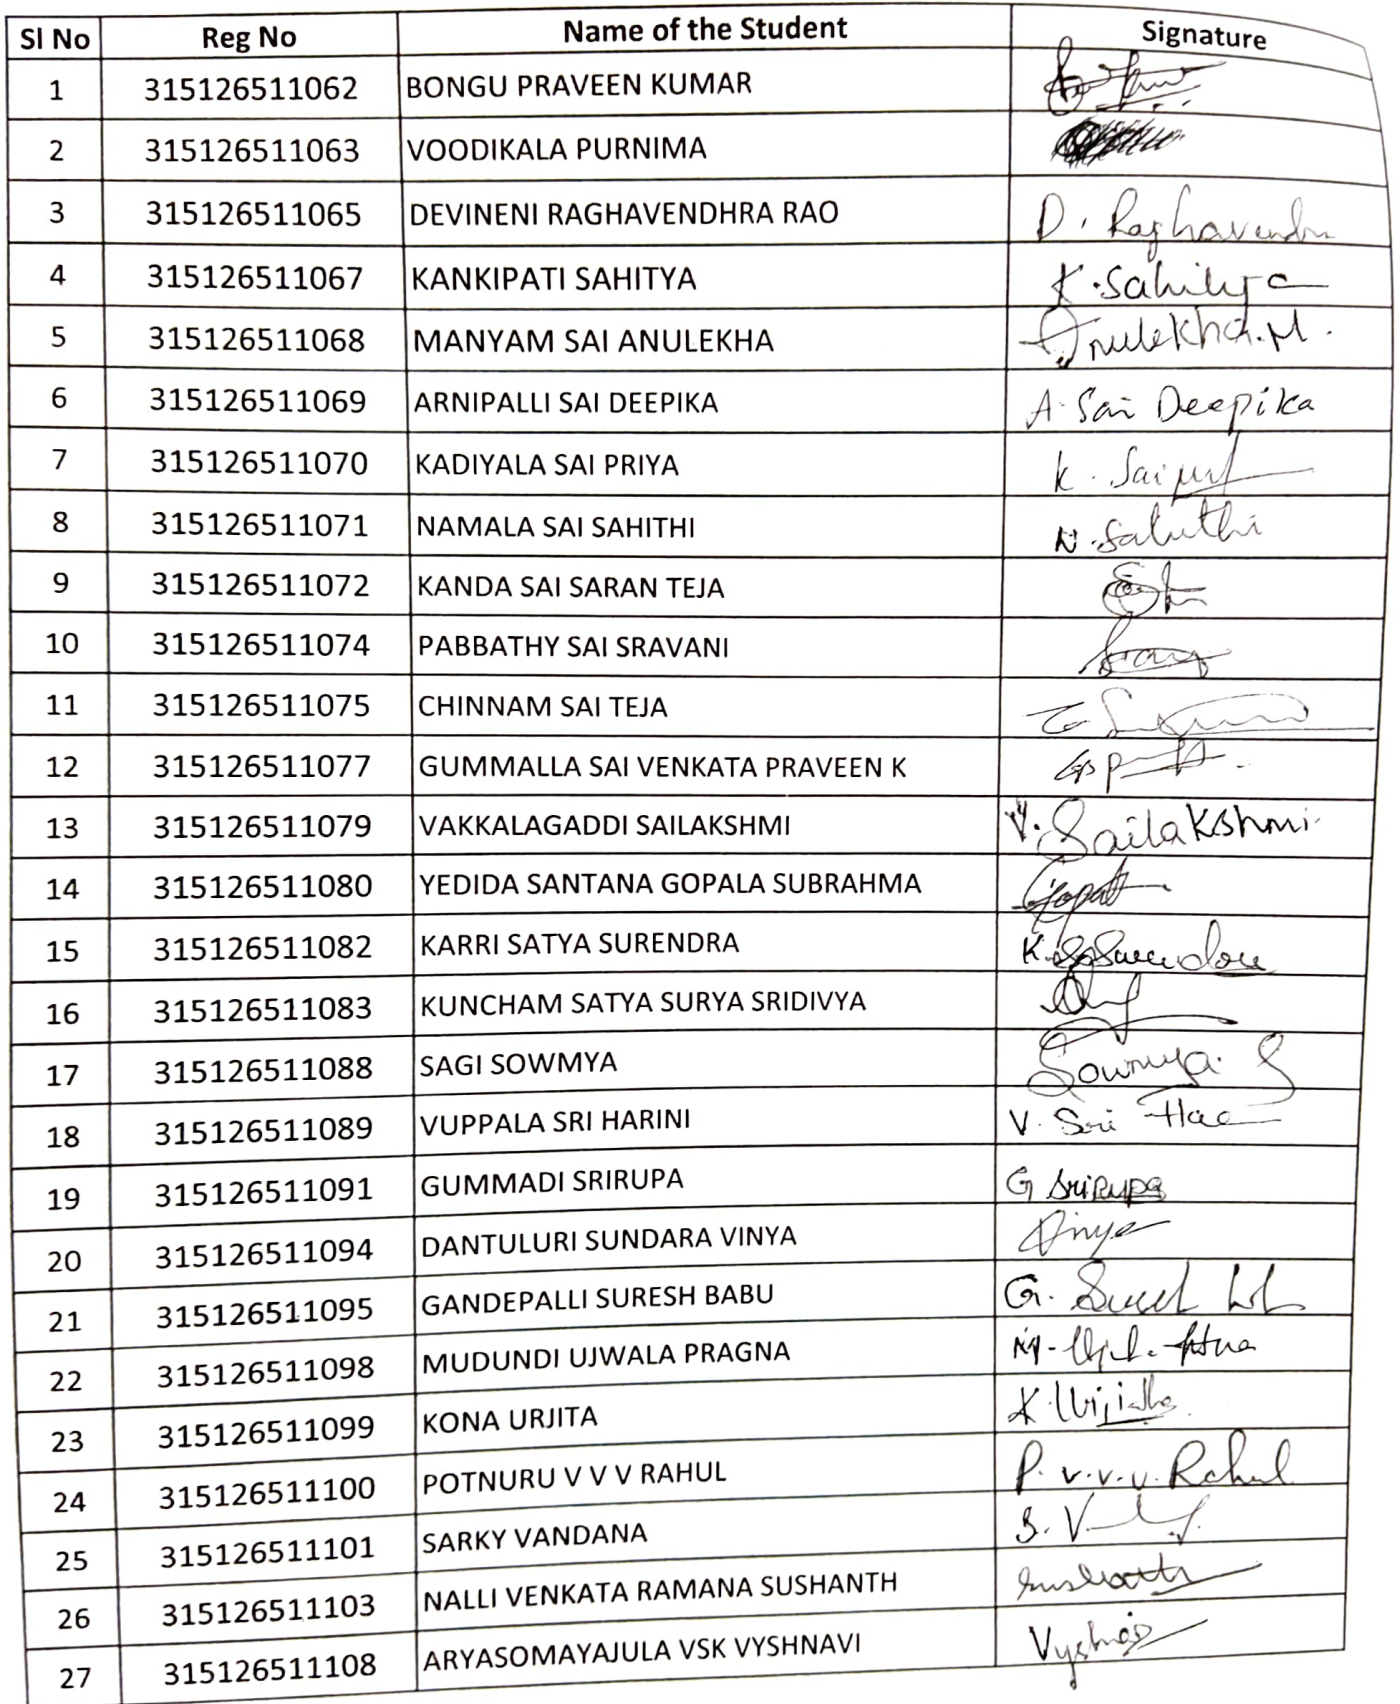 Sl No Reg No Name of the Student Signature
1 315126511062 BONGU PRAVEEN KUMAR
2 315126511063 VOODIKALA PURNIMA
3 315126511065 DEVINENI RAGHAVENDHRA RAO D. Raghavendra
4 315126511067 KANKIPATI SAHITYA K. Sahitya
5 315126511068 MANYAM SAI ANULEKHA Anulekha.M.
6 315126511069 ARNIPALLI SAI DEEPIKA A. Sai Deepika
7 315126511070 KADIYALA SAI PRIYA K.
8 315126511071 NAMALA SAI SAHITHI N. Sahithi
9 315126511072 KANDA SAI SARAN TEJA
10 315126511074 PABBATHY SAI SRAVANI
11 315126511075 CHINNAM SAI TEJA
12 315126511077 GUMMALLA SAI VENKATA PRAVEEN K
13 315126511079 VAKKALAGADDI SAILAKSHMI V. Sailakshmi
14 315126511080 YEDIDA SANTANA GOPALA SUBRAHMA
15 315126511082 KARRI SATYA SURENDRA
16 315126511083 KUNCHAM SATYA SURYA SRIDIVYA
17 315126511088 SAGI SOWMYA Sowmya. S
18 315126511089 VUPPALA SRI HARINI V. Sri
19 315126511091 GUMMADI SRIRUPA G Srirupa
20 315126511094 DANTULURI SUNDARA VINYA Vinya
21 315126511095 GANDEPALLI SURESH BABU G.
22 315126511098 MUDUNDI UJWALA PRAGNA
23 315126511099 KONA URJITA K.
24 315126511100 POTNURU V V V RAHUL P. v. v. v. Rahul
25 315126511101 SARKY VANDANA
26 315126511103 NALLI VENKATA RAMANA SUSHANTH
27 315126511108 ARYASOMAYAJULA VSK VYSHNAVI